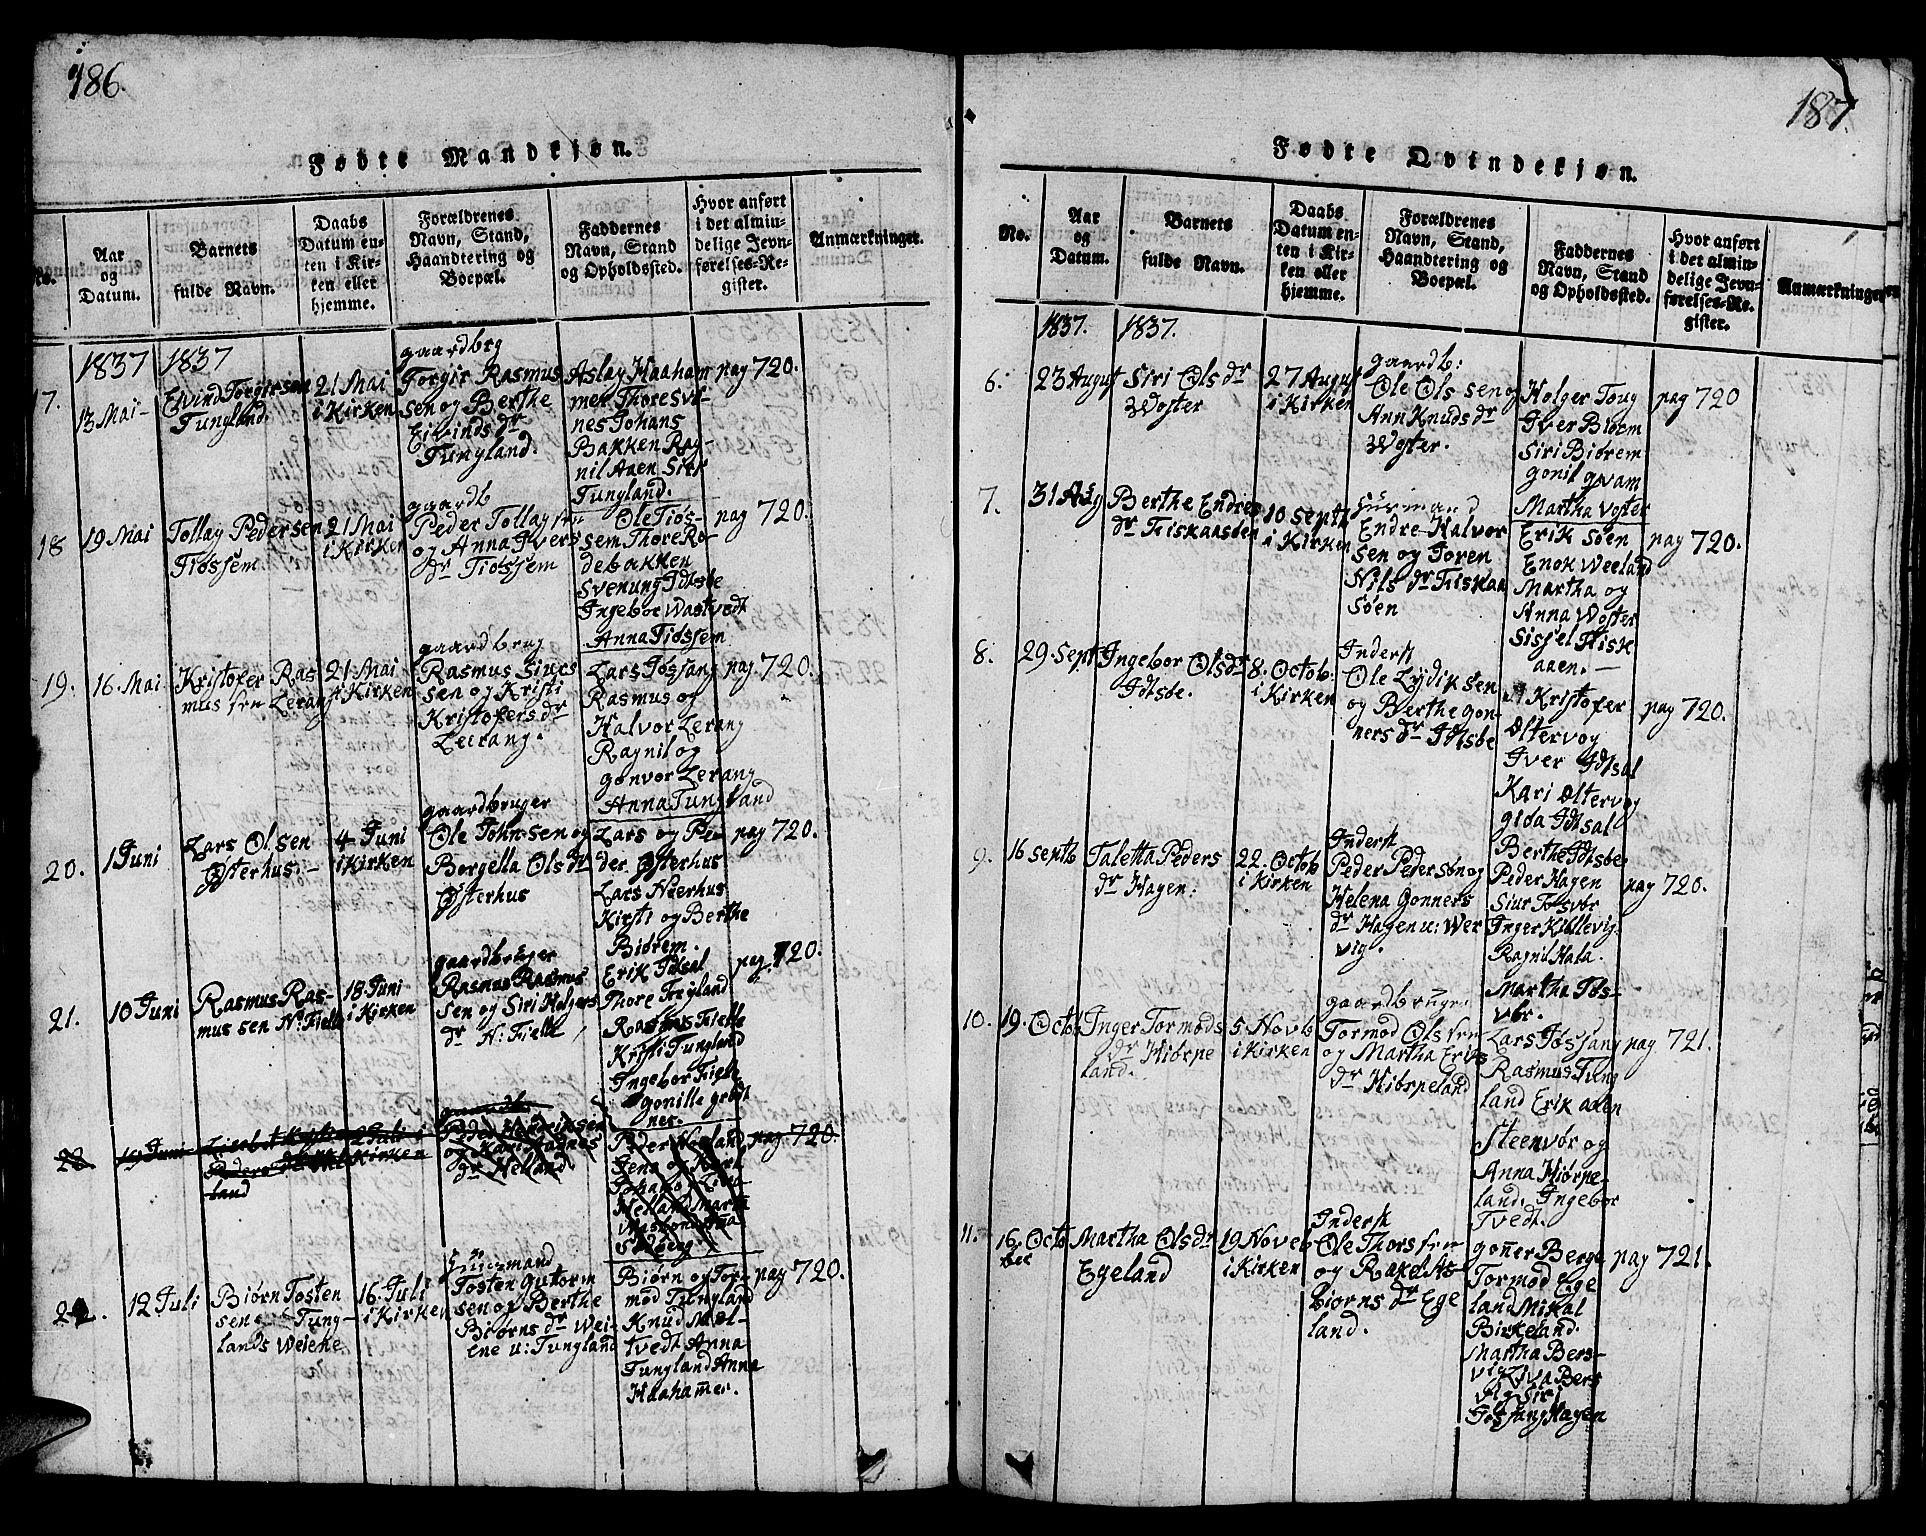 186.
Fødte Mandkjøn.
No.
Aar
og
Datum.
Barnets
fulde Navn.
Daabs
Datum en-
ten i Kir-
ken eller
hjemme.
Forældrenes
Navn, Stand,
Haandtering og
Boepæl.
Faddernes
Navn, Stand
og Opholdssted.
Hvor anført
i det almin-
delige Jevn-
førelses-Re-
gister.
Anmærkninger.
1837
1837
17.
13 Mai-
Eivind Torgirsen
Tungland
21 Mai
i Kirken
gaardbrg
Torgir Rasmus
sen og Berthe
Eivinds dr
Tungland.
Aslag Haaham
mer Thore Svi-
nes Johans
Bakken Rag-
nil Aaen Siri
Tungland.
pag 720.
18
19 Mai
Tollag Pedersen
Tiøssem
21 Mai
i Kirken
gaardb
Peder Tollagsen
og Anna Ivers
dr Tiøssem
Ole Tiøs-
sem Thore Ro-
debakken
Svenung Idtsbe
Ingebor Wastvedt
Anna Tiøssem
pag 720.
19.
16. Mai
Kristofer Ras
mussen Lerang
21. Mai
i Kirken
gaardbrug
Rasmus Siurs
sen og Kristi
Kristofers dr
Leirang.
Lars Tøssang
Rasmus og
Halvor Lerang
Ragnil og
gonvor Lerang
Anna Tungland
pag 720.
20.
1 Juni
Lars Olsen
Østerhus.-
4 Juni
i Kirken
gaardbruger
Ole Johnsen og
Borgella Olsdr
Østerhus
Lars og Pe
der Østerhus
Lars Neerhus
Kirsti og Berthe
Biørem.
pag 720.
21.
10 Juni
Rasmus Ras-
mussen N: Fielle
18 Juni
i Kirken
gaardbruger
Rasmus Rasmus
sen og Siri Holgers
dr N: Fielle
Erik Idsal
Thore Freyland
Rasmus Fielle
Kristi Tungland
Ingebor Fielle
gonille grødt
ner.
pag. 720.
22
19 Juni
Peders
land
2 Juli i
Kirken
gaardb
Peder
og Kari Magnes
dr Helland
Peder Høeland
Jens og Kari
Helland Martha
Anna
pag 720.
22.
12 Juli
Biørn Tosten
sen Tung-
lands Weiene
16. Juli
i Kirken
Huusmand
Tosten Gutorm
sen og Berthe
Biørns dr Wei-
ene u: Tungland
Biørn og Tor-
mod Tungland
Knud Mæl-
tvedt Anna
Tungland Anna
Haahamer.
pag 720.
187.
Fødte Qvindekjøn.
No.
Aar
og
Datum.
Barnets
fulde Navn.
Daabs
Datum en-
ten i Kir-
ken eller
hjemme.
Forældrenes
Navn, Stand,
Haandtering og
Boepæl.
Faddernes
Navn, Stand
og Opholdssted.
Hvor anført
i det almin-
delige Jevn-
førelses-Re-
gister.
Anmærkninger.
1837.
1837.
6.
23 August
Siri Ols dr
Woster
27 August
i Kirken
gaardb:
Ole Olssen og
Ann Knuds dr
Woster.
Holger Toug
Iver Biørem
Siri Biørem
gonil gvam
Martha Voster
pag 720
7.
31 Aug
Berthe Endres
dr Fiskaasøen
10 Septb
i Kirken
Huusmand
Endre Halvor
sen og Joren
Nils dr Fiskaa
søen
Erik Søen
Enok Weeland
Martha og
Anna Woster
Sissel Fisk
aaen.-
pag 720.
8.
29. Sept
Ingebor Olsdr
Idtsbe.
8. Octob.
i Kirken
Inderst
Ole Lydiksen
og Berthe Gon-
ners dr Idtsbe
Kristofer
Østervog
Iver Idtsal
Kari Østervog
gida Idtsal
Berthe Idtsbe
pag 720.
9.
16 Septb
Taletta Peders
dr Hagen:
22. Octob
i Kirken
Inderst
Peder Pedersøn og
Helena Gonners
dr Hagen u: Wer
vig.
Peder Hagen
Siur Tøsvbr
Inger Killevig
Ragnil Hala.
Martha Tøs-
vbr.
pag 720.
10.
19. Octob
Inger Tormods
dr Hiørpe
land.
5 Novb
i Kirken
gaardbruger
Tormod Olssen
og Martha Eriks
dr Hiørpeland
Lars Tøssang
Rasmus Tung
land Erik aaen
Steenvør og
Anna Hiørpe
land. Ingebor
Tvedt.
pag 721.
11.
16. Octo
ber
Martha Olsdr
Egeland
19 Noveb
i Kirken
Inderst
Ole Thorssen
og Rakel As-
biørns dr Ege
land.
gonner Berge
Tormod Ege
land Mikal
Birkeland.
Martha Bers-
vig Eva Bers
vig Siri
Tøssang Hagen
pag 721.